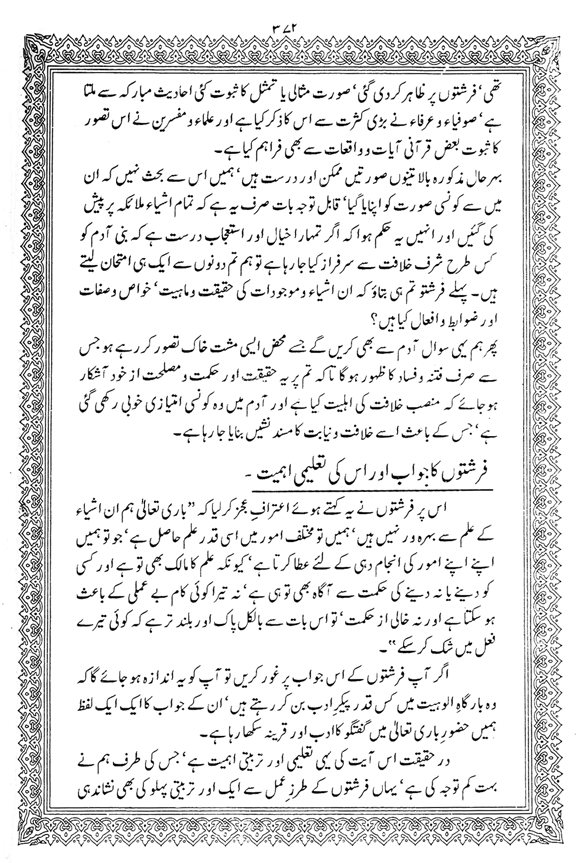 ۳۷۲
تھی، فرشتوں پر ظاہر کر دی گئی، صورت مثالی یا تمثل کا ثبوت کئی احادیث مبارکہ سے ملتا
ہے، صوفیاء و عرفاء نے بڑی کثرت سے اس کا ذکر کیا ہے اور علماء و مفسرین نے اس تصور
کا ثبوت بعض قرآنی آیات و واقعات سے بھی فراہم کیا ہے۔
بہر حال مذکورہ بالا تینوں صورتیں ممکن اور درست ہیں، ہمیں اس سے بحث نہیں کہ ان
میں سے کونسی صورت کو اپنایا گیا، قابل توجہ بات صرف یہ ہے کہ تمام اشیاء ملائکہ پر پیش
کی گئیں اور انہیں یہ حکم ہوا کہ اگر تمہارا خیال اور استعجاب درست ہے کہ بنی آدم کو
کس طرح شرف خلافت سے سرفراز کیا جا رہا ہے تو ہم تم دونوں سے ایک ہی امتحان لیتے
ہیں۔ پہلے فرشتو تم ہی بتاؤ کہ ان اشیاء و موجودات کی حقیقت و ماہیت، خواص و صفات
اور ضوابط و افعال کیا ہیں؟
پھر ہم یہی سوال آدم سے بھی کریں گے جسے محض ایسی مشت خاک تصور کر رہے ہو جس
سے صرف فتنہ و فساد کا ظہور ہو گا تاکہ تم پر یہ حقیقت اور حکمت و مصلحت از خود آشکار
ہو جائے کہ منصب خلافت کی اہلیت کیا ہے اور آدم میں وہ کونسی امتیازی خوبی رکھی گئی
ہے، جس کے باعث اسے خلافت و نیابت کا مسند نشیں بنایا جا رہا ہے۔
فرشتوں کا جواب اور اس کی تعلیمی اہمیت ۔
اس پر فرشتوں نے یہ کہتے ہوئے اعترافِ عجز کر لیا کہ ”باری تعالیٰ ہم ان اشیاء
کے علم سے بہرہ ور نہیں ہیں، ہمیں تو مختلف امور میں اسی قدر علم حاصل ہے، جو تو ہمیں
اپنے اپنے امور کی انجام دہی کے لئے عطا کرتا ہے، کیونکہ علم کا مالک بھی تو ہے اور کسی
کو دینے یا نہ دینے کی حکمت سے آگاہ بھی تو ہی ہے، نہ تیرا کوئی کام بے عملی کے باعث
ہو سکتا ہے اور نہ خالی از حکمت، تو اس بات سے بالکل پاک اور بلند تر ہے کہ کوئی تیرے
فعل میں شک کر سکے“۔
اگر آپ فرشتوں کے اس جواب پر غور کریں تو آپ کو یہ اندازہ ہو جائے گا کہ
وہ بارگاہِ الوہیت میں کس قدر پیکرِ ادب بن کر رہتے ہیں، ان کے جواب کا ایک ایک لفظ
ہمیں حضورِ باری تعالیٰ میں گفتگو کا ادب اور قرینہ سکھا رہا ہے۔
در حقیقت اس آیت کی یہی تعلیمی اور تربیتی اہمیت ہے، جس کی طرف ہم نے
بہت کم توجہ کی ہے، یہاں فرشتوں کے طرزِ عمل سے ایک اور تربیتی پہلو کی بھی نشاندہی